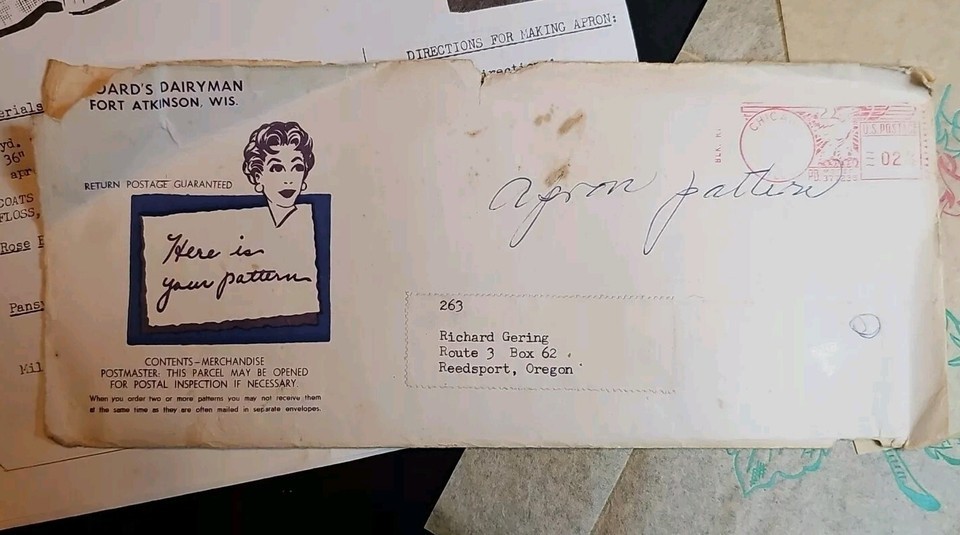 DIRECTIONS FOR MAKING APRON:
OARD'S DAIRYMAN
FORT ATKINSON, WIS.
RETURN POSTAGE GUARANTEED
Here is
your pattern
CONTENTS—MERCHANDISE
POSTMASTER: THIS PARCEL MAY BE OPENED
FOR POSTAL INSPECTION IF NECESSARY
When you order two or more patterns you may not receive them
at the same time as they are often mailed in separate envelopes.
CHICA
U.S. POSTAGE
02
apron pattern
263
Richard Gering
Route 3 Box 62
Reedsport, Oregon
erials
yd.
36"
apr
COATS
FLOSS,
Rose
Pans
Mil